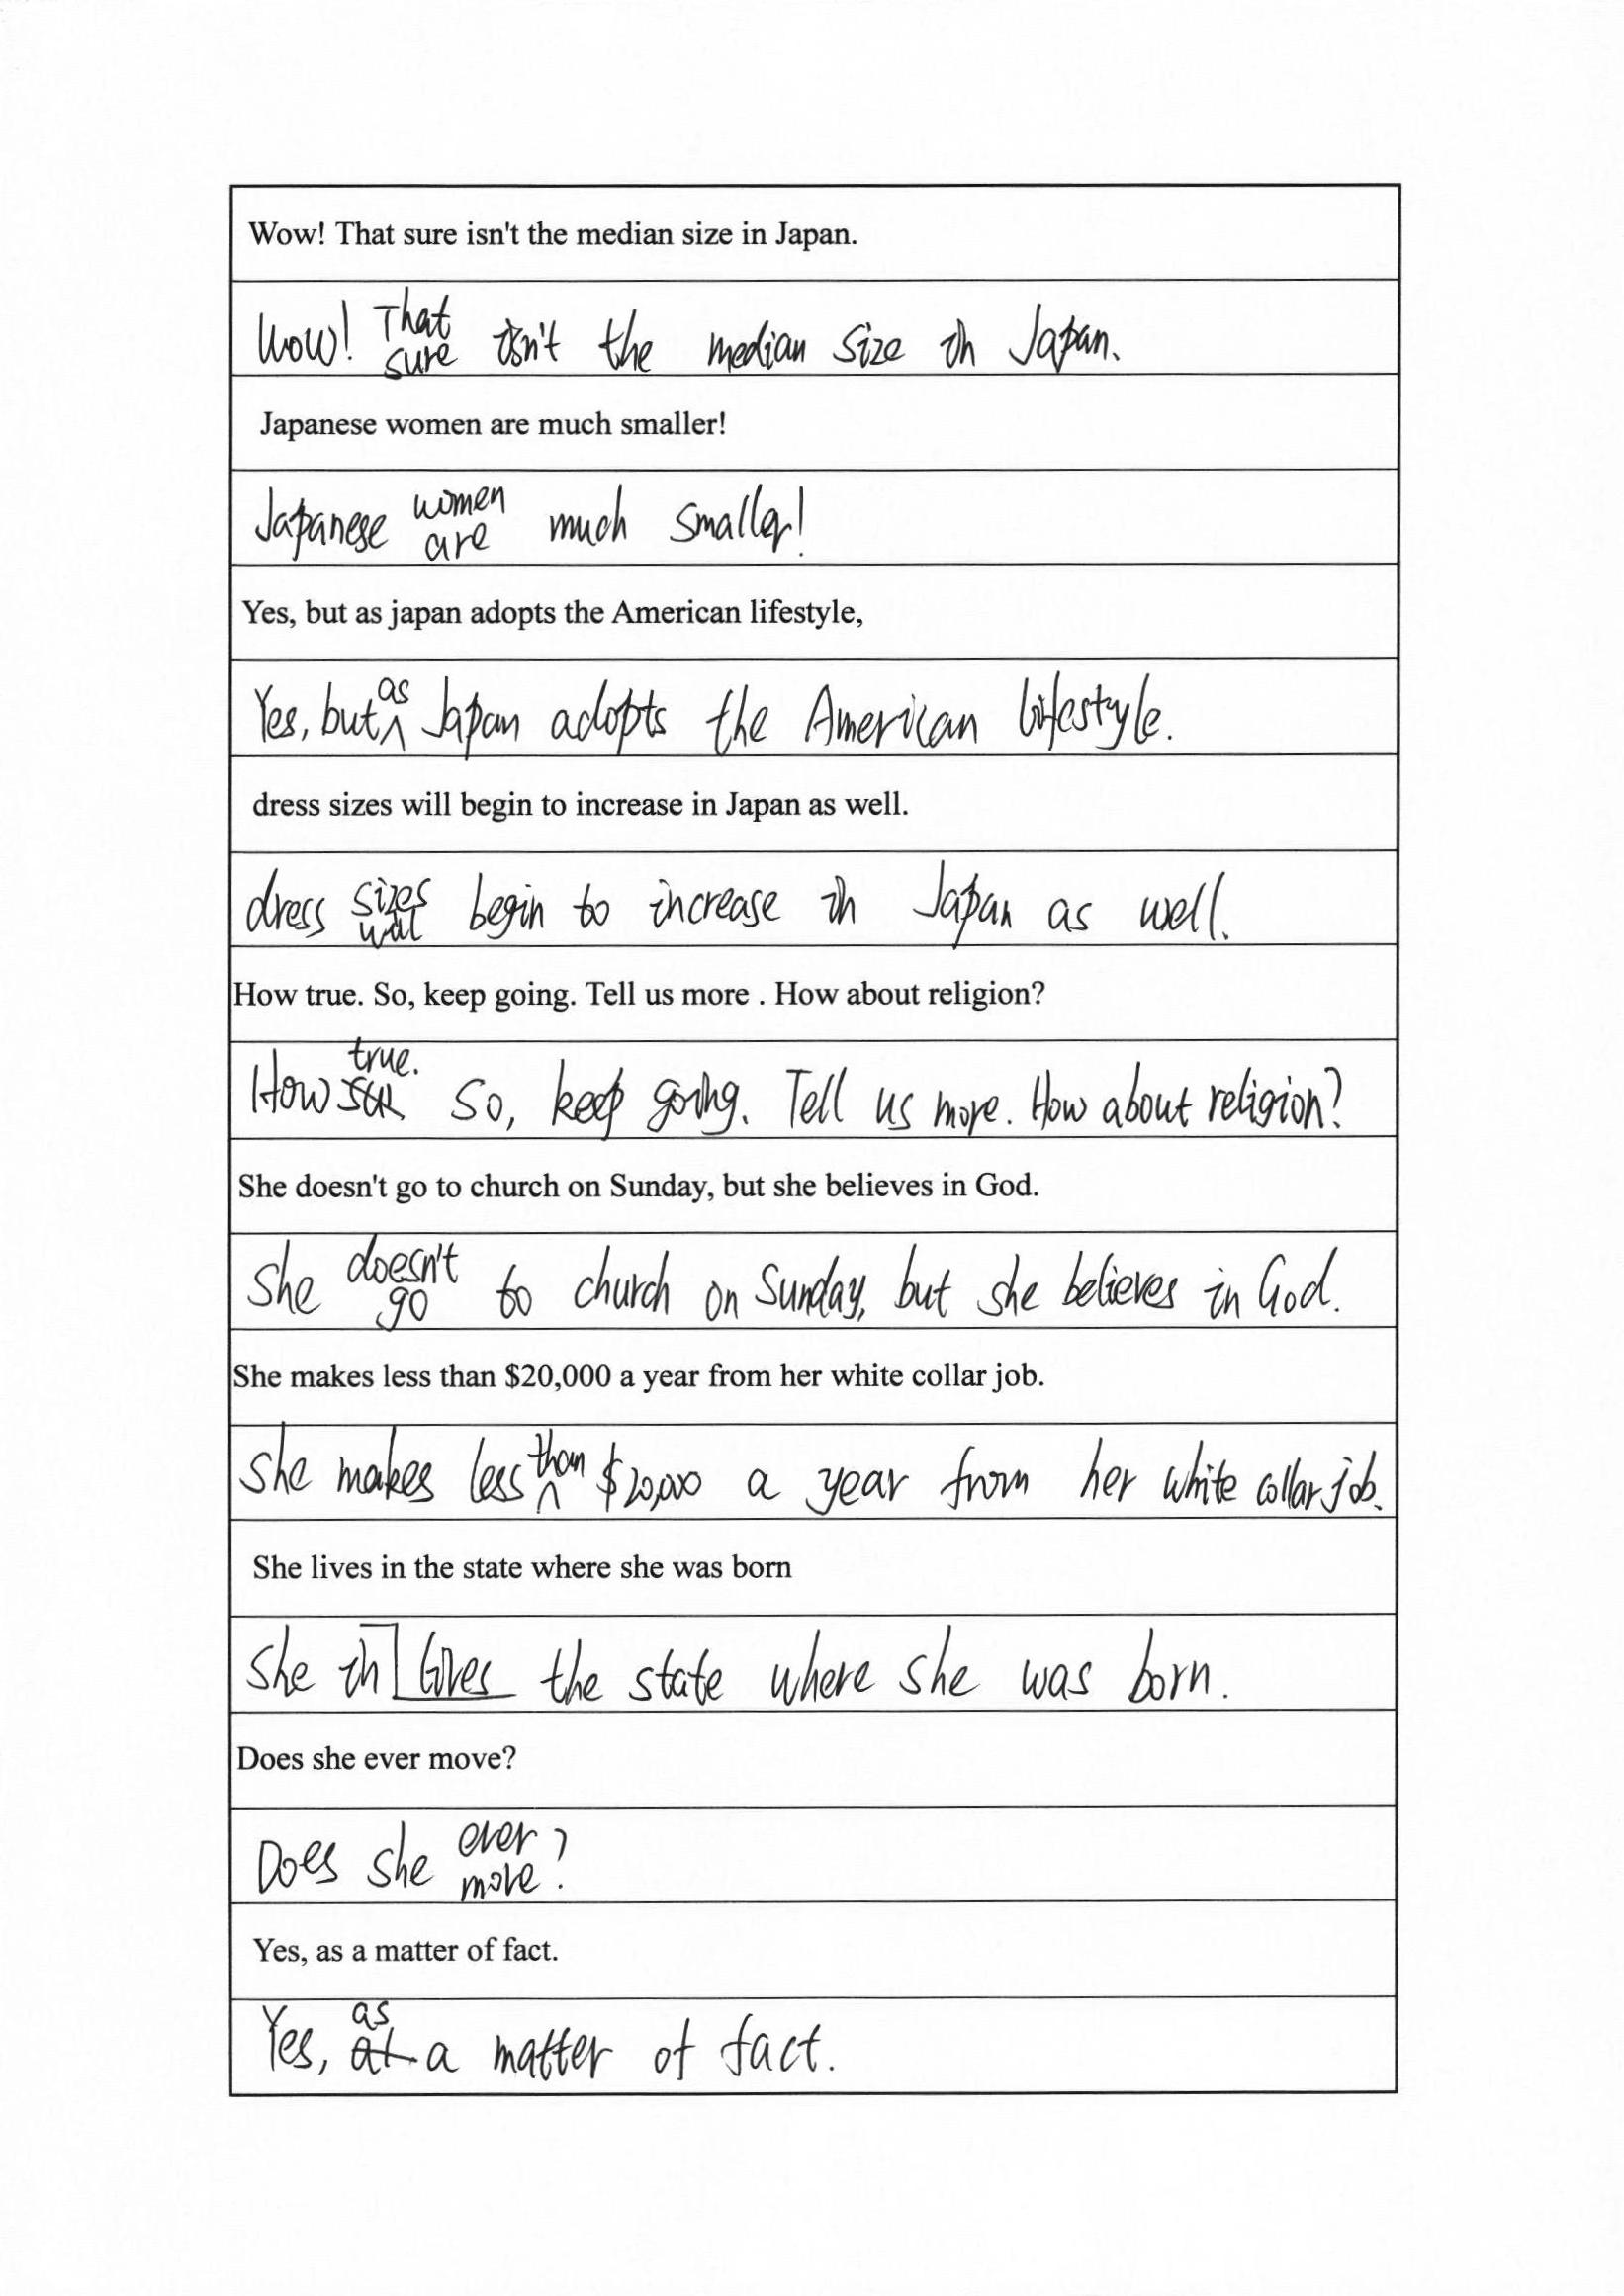 Wow! That sure isn't the median size in Japan.
Wow! That sure isn't the median size in Japan.
Japanese women are much smaller!
Japanese women are much smaller!
Yes, but as japan adopts the American lifestyle,
Yes, but as Japan adopts the American lifestyle.
dress sizes will begin to increase in Japan as well.
dress sizes will begin to increase in Japan as well.
How true. So, keep going. Tell us more . How about religion?
How true. So, keep going. Tell us more. How about religion?
She doesn't go to church on Sunday, but she believes in God.
She doesn't go to church on Sunday, but she believes in God.
She makes less than $20,000 a year from her white collar job.
She makes less than $20,000 a year from her white collar job.
She lives in the state where she was born
She in lives the state where she was born.
Does she ever move?
Does she ever move?
Yes, as a matter of fact.
Yes, as a matter of fact.